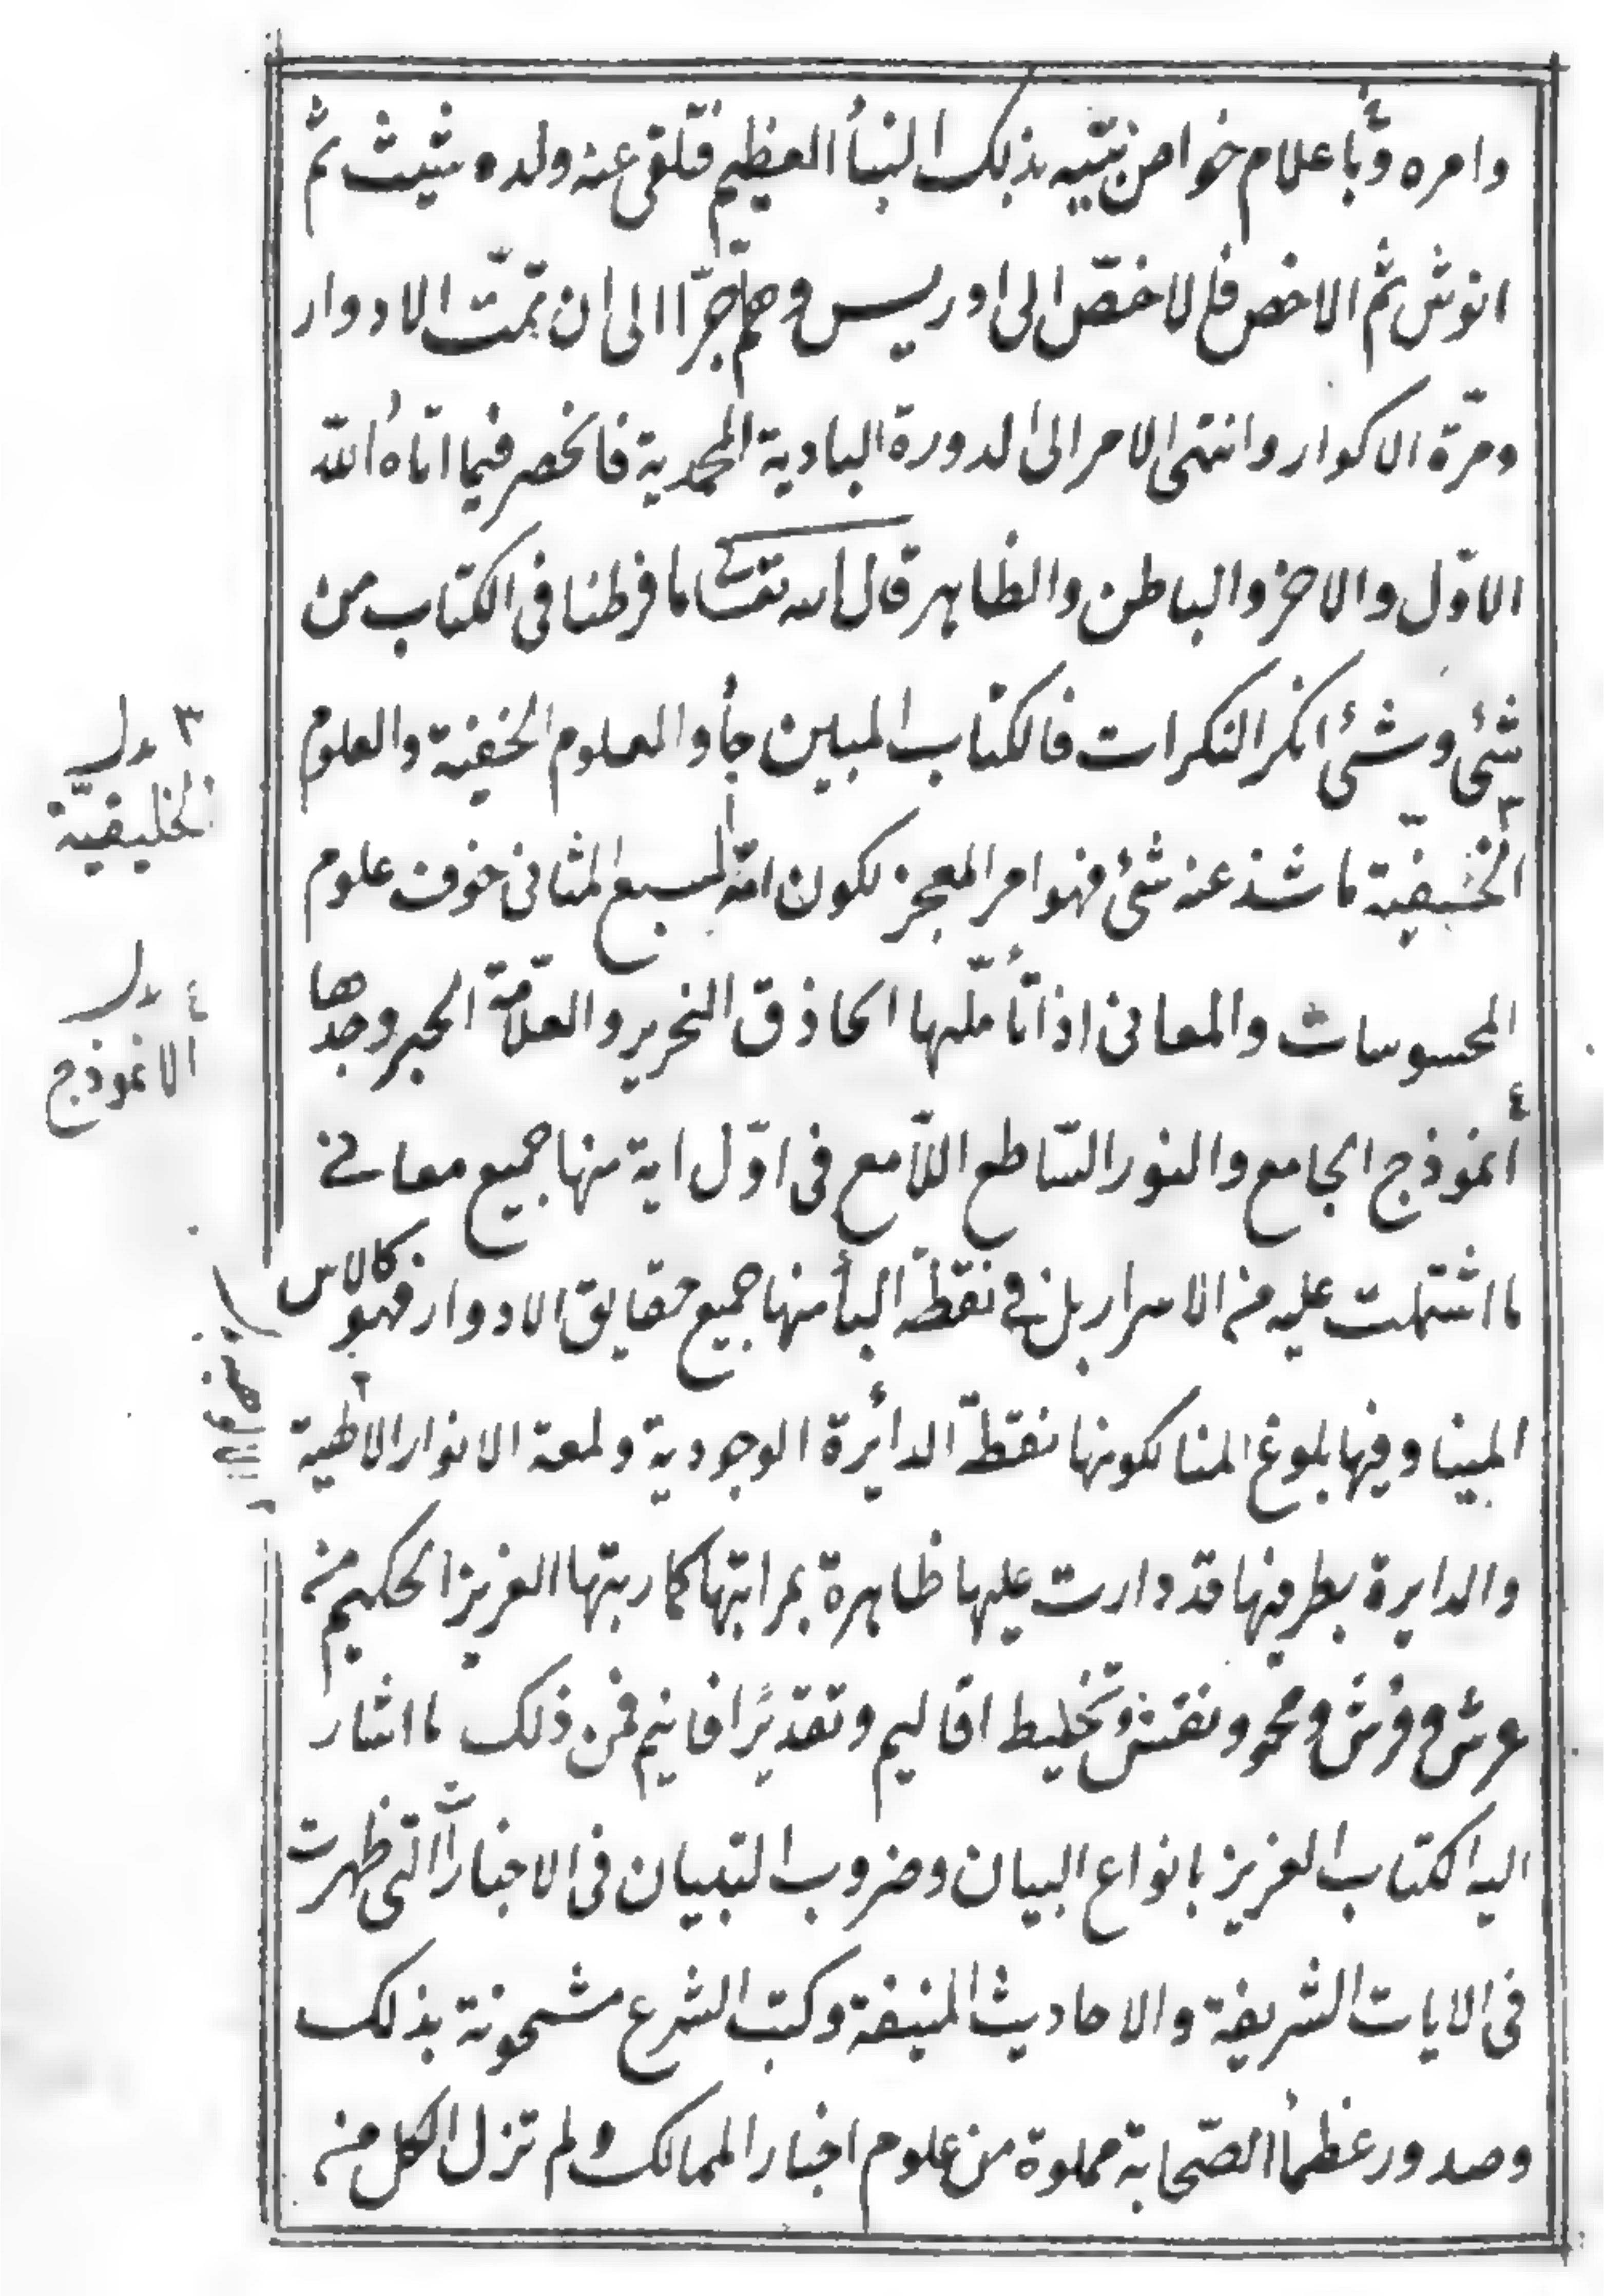 وامره وَّبأعلام خواص بنيه بذلك النبأ العظيم فتلقى عنه ولده شيث ثم
انوش ثم الاخص فلاخصّ الى اوريس وهلمّ جرّا الى ان تمّت الادوار
ومرّة الاكوار وانتهى الامر الى الدورة البادية المحمدية فانحصر فيما اتاهُ اللّه
الاوّل والاخر والباطن والظاهر قال الله تعالى ما فرطنا فى الكتاب من
شئ وشئ انكر النكرات فالكتاب المبين جأ والمعلوم الخفية والعلوم
الخفيفيّة ما شذ عنه شئ فهو امر المعجز لكون امّه السبع المثانى خوف علوم
المحسوسات والمعانى اذا تأمّلها الحاذق النحرير والعلّامة الحبر وجدها
أنموذج الجامع والنور السّاطع اللاّمع فى اوّل اية منها جميع معانى
ما اشتملت عليه من الاسرار بل فى نقطة البأ منها جميع حقايق الادوار فهو كالاس
المبينا وفيها بلوغ المنا لكونها نقطة الدائرة الوجودية ولمعة الانوار الالهية
والدايرة بطرفيها قد دارت عليها ظاهرة بمراتبها كما ربتها العزيز الحكيم من
عرش وفرش ومحو ونقش وتخليط اقاليم وتقديرًا فانيم فمن ذلك ما اشار
اليه الكتاب العزيز بانواع البيان وضروب التبيان فى الاخبار التى ظهرت
فى الايات الشريفة والاحاديث المنيفة وكتب الشرع مشحونة بذلك
وصدور عظمأ الصّحابة مملوة من علوم اخبار الممالك ولم تزل الكل من
٣ بدل
الخليقيّة
٤ بدل
الانموذج